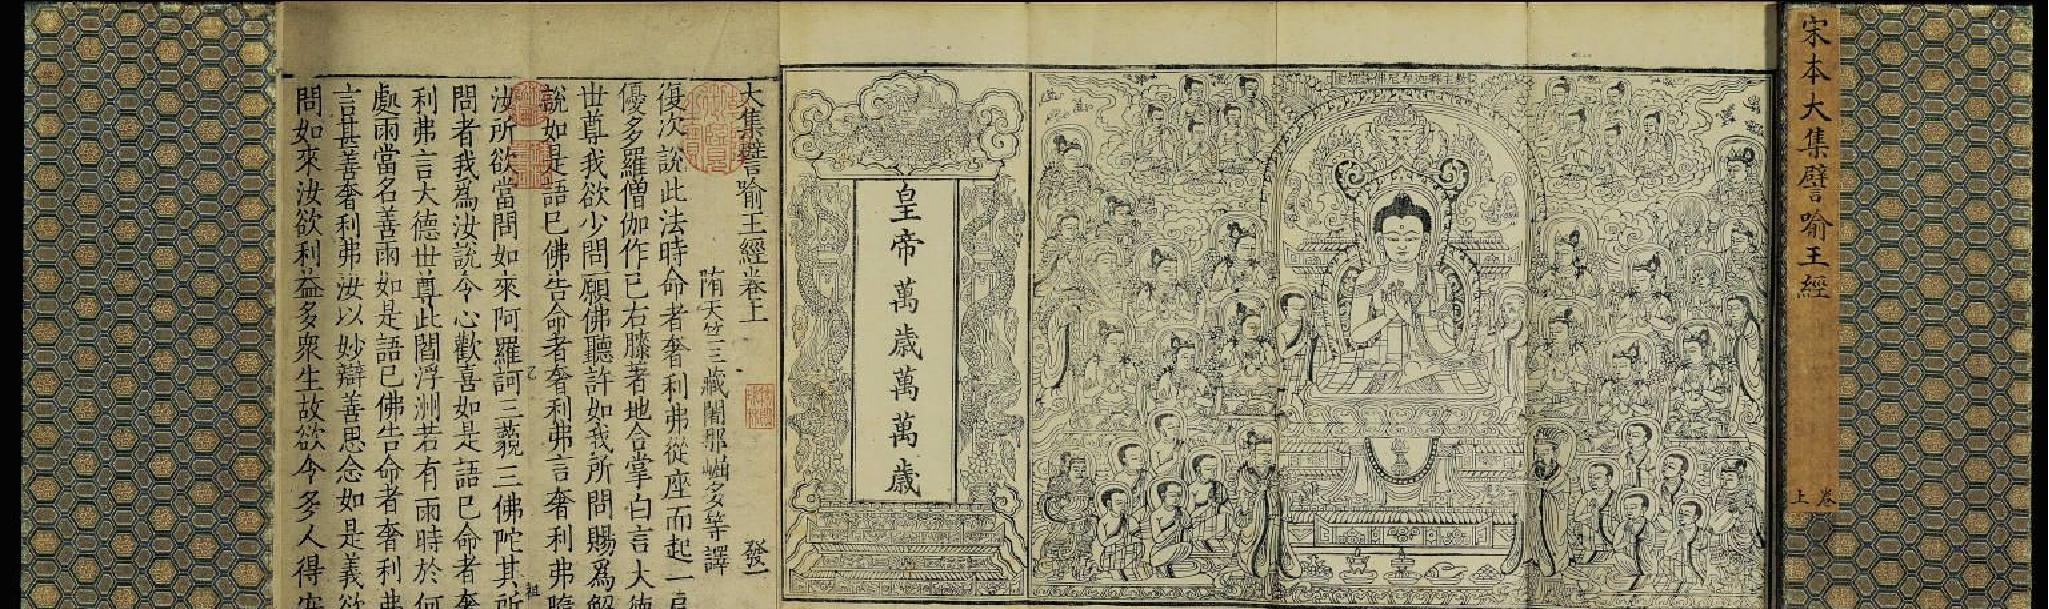 宋本大集譬喻王經
卷上
皇帝萬歲萬萬歲
大集譬喻王經卷上 發一
隋天竺三藏闍那崛多等譯
復次說此法時命者奢利弗從座而起一肩
優多羅僧伽作已右膝著地合掌白言大德
世尊我欲少問願佛聽許如我所問賜爲解
說如是語已佛告命者奢利弗言奢利弗隨
汝所欲當問如來阿羅訶三藐三佛陀其所
問者我爲汝說令心歡喜如是語已命者奢
利弗言大德世尊此閻浮洲若有雨時於何
處雨當名善雨如是語已佛告命者奢利弗
言甚善奢利弗汝以妙辯善思念如是義欲
問如來汝欲利益多衆生故欲令多人得安